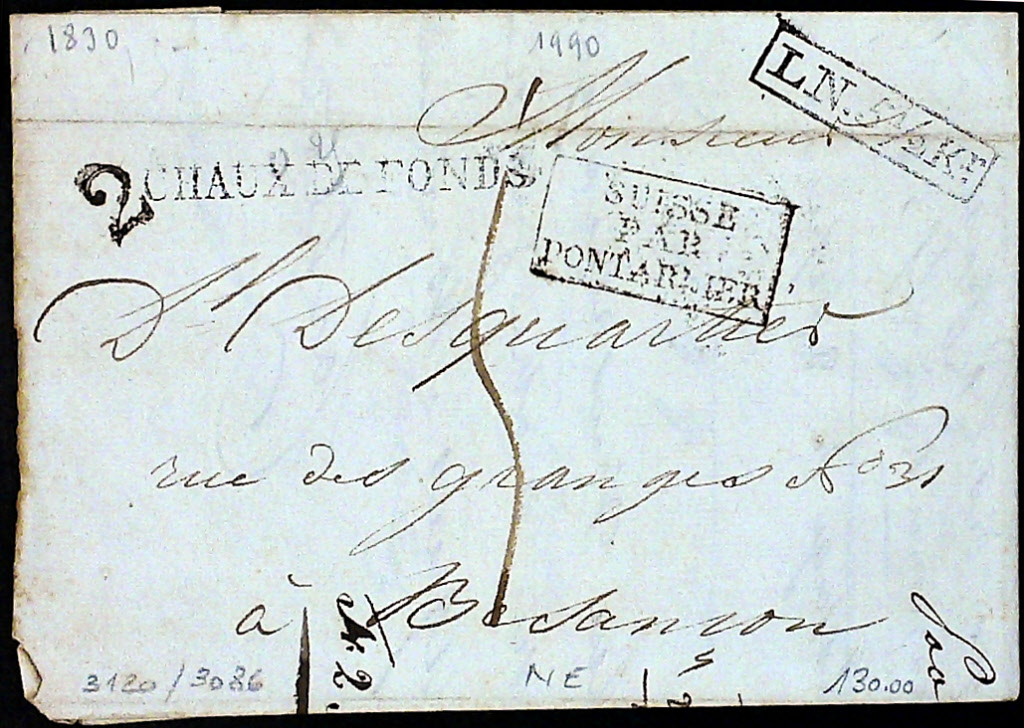 1830
1990
L.N. 5½ Kr.
Monsieur
2
CHAUX DE FONDS
SUISSE
PAR
PONTARLIER
Dl Desquartier
rue des granges No 31
à Besançon
N. 2
3120/3086
NE
130.00